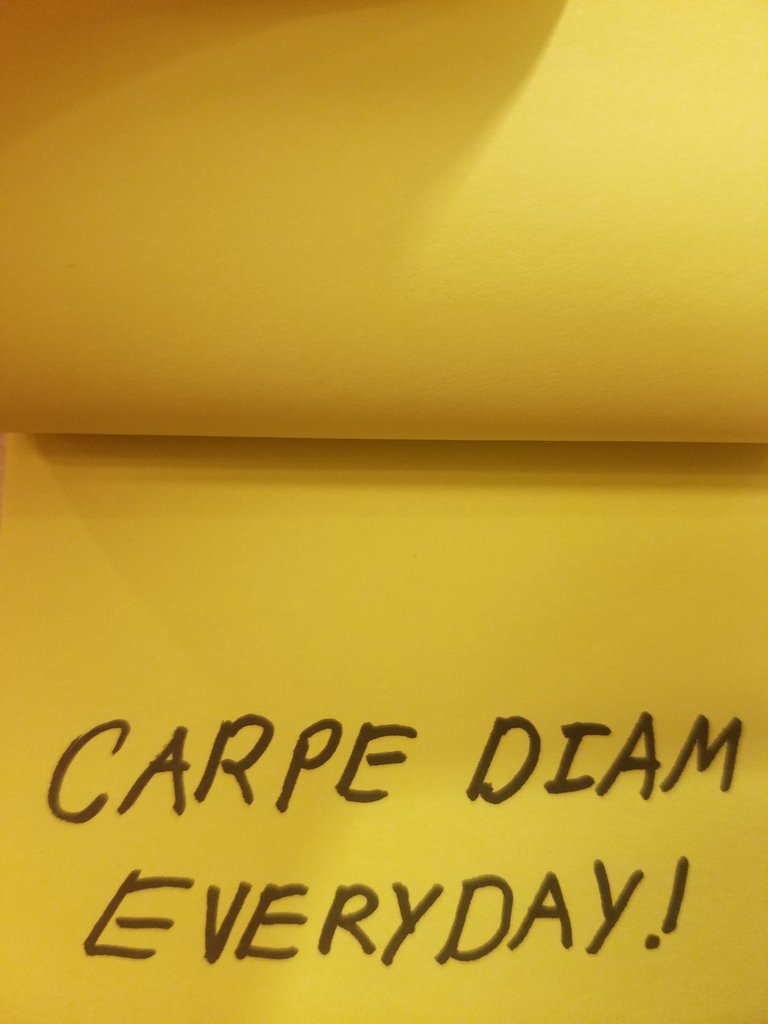 CARPE DIAM
EVERYDAY!